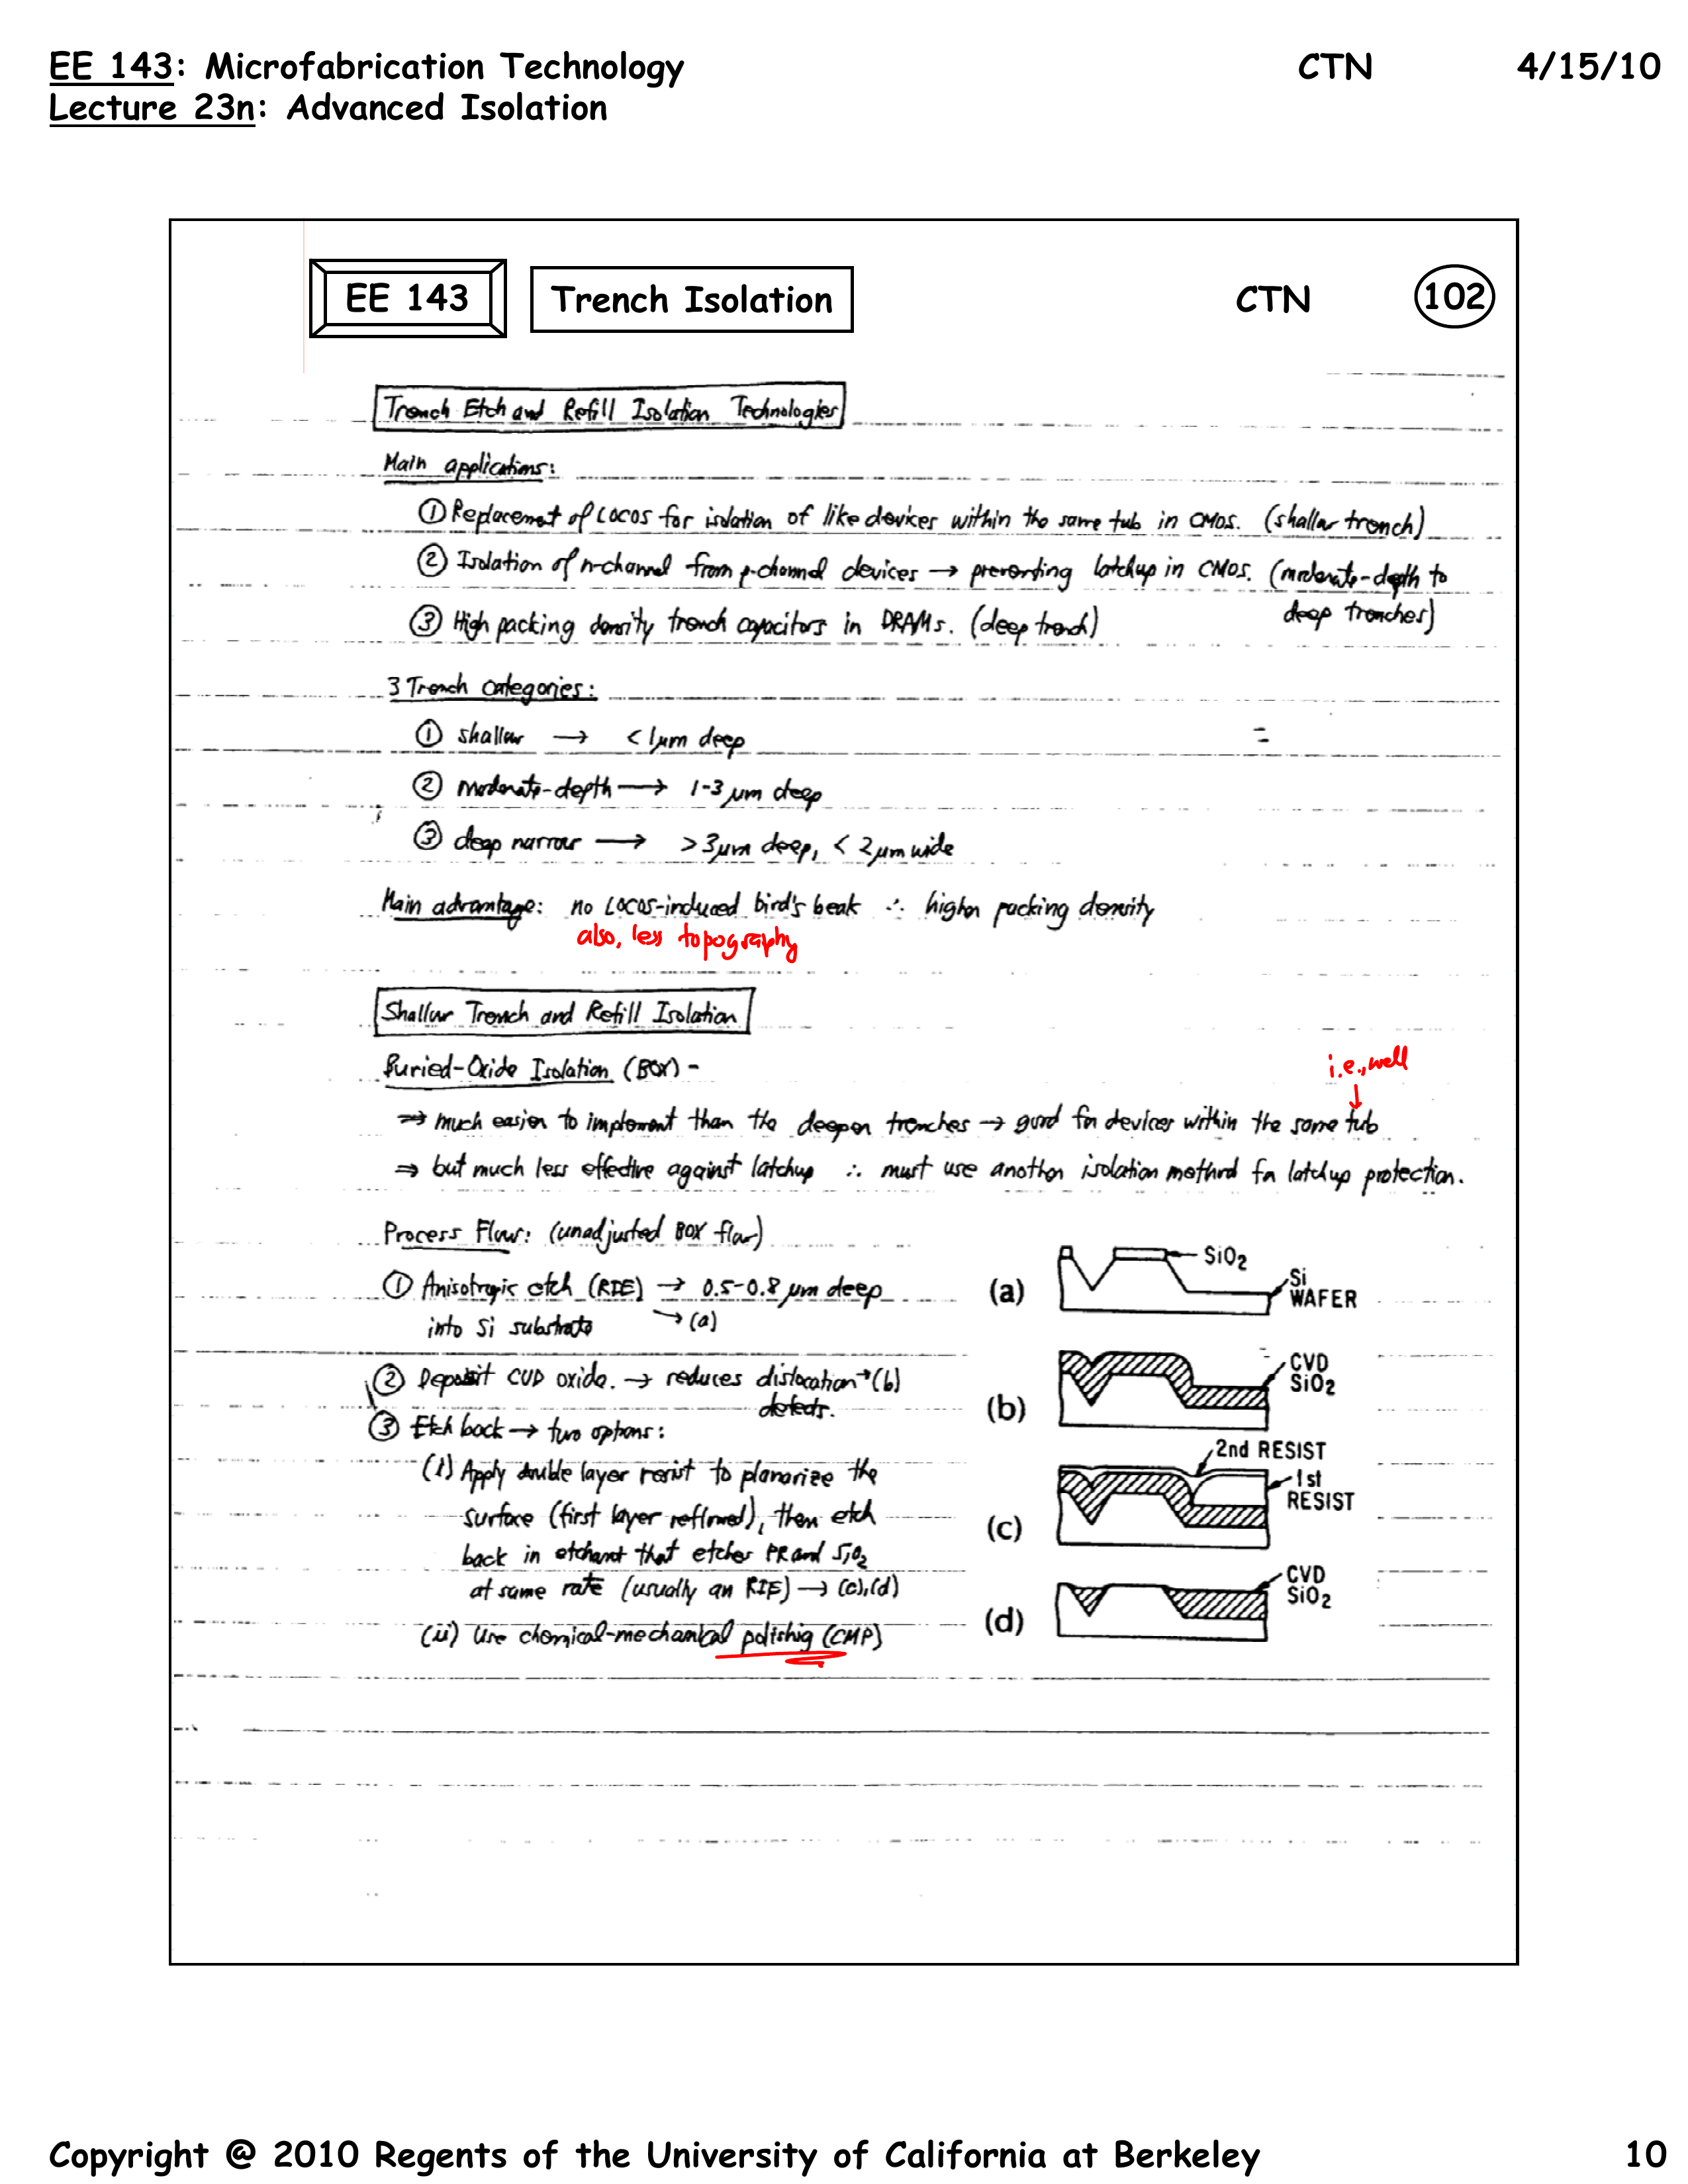 EE 143: Microfabrication Technology CTN 4/15/10
Lecture 23n: Advanced Isolation
EE 143 Trench Isolation CTN 102
Trench Etch and Refill Isolation Technologies
Main applications:
① Replacement of LOCOS for isolation of like devices within the same tub in CMOS. (shallow trench)
② Isolation of n-channel from p-channel devices → preventing latchup in CMOS. (moderate-depth to
deep trenches)
③ High packing density trench capacitors in DRAMs. (deep trench)
3 Trench categories:
① shallow → < 1μm deep
② moderate-depth → 1-3 μm deep
③ deep narrow → > 3μm deep, < 2μm wide
Main advantage: no LOCOS-induced bird's beak ∴ higher packing density
also, less topography
Shallow Trench and Refill Isolation
Buried-Oxide Isolation (BOX) -
i.e., well
↓
⇒ much easier to implement than the deeper trenches → good for devices within the same tub
⇒ but much less effective against latchup ∴ must use another isolation method for latchup protection.
Process Flow: (unadjusted BOX flow)
① Anisotropic etch (RIE) → 0.5-0.8 μm deep
into Si substrate → (a)
② Deposit CVD oxide. → reduces dislocation → (b)
defects.
③ Etch back → two options:
(i) Apply double layer resist to planarize the
surface (first layer reflowed), then etch
back in etchant that etches PR and SiO2
at same rate (usually an RIE) → (c),(d)
(ii) Use chemical-mechanical polishing (CMP)
(a) SiO2
Si
WAFER
(b) CVD
SiO2
2nd RESIST
1st
RESIST
(c)
CVD
SiO2
(d)
Copyright @ 2010 Regents of the University of California at Berkeley 10